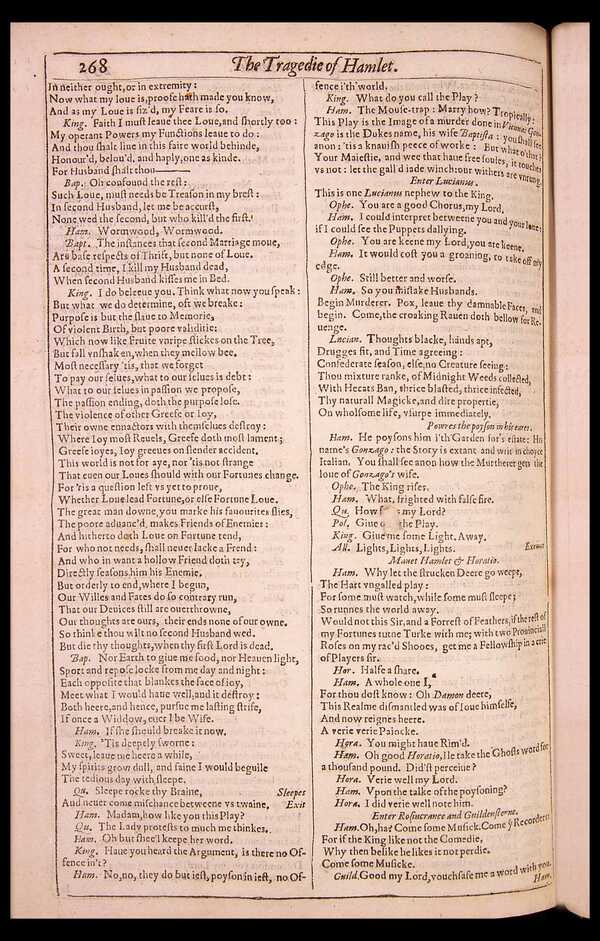 268
The Tragedie of Hamlet.
In neither ought, or in extremity:
Now what my loue is, proofe hath made you know,
And as my Loue is siz'd, my Feare is so.
King. Faith I must leaue thee Loue, and shortly too:
My operant Powers my Functions leaue to do:
And thou shalt liue in this faire world behinde,
Honour'd, belou'd, and haply, one as kinde.
For Husband shalt thou——
Bap. Oh confound the rest:
Such Loue, must needs be Treason in my brest:
In second Husband, let me be accurst,
None wed the second, but who kill'd the first.
Ham. Wormwood, Wormwood.
Bapt. The instances that second Marriage moue,
Are base respects of Thrift, but none of Loue.
A second time, I kill my Husband dead,
When second Husband kisses me in Bed.
King. I do beleeue you. Think what now you speak:
But what we do determine, oft we breake:
Purpose is but the slaue to Memorie,
Of violent Birth, but poore validitie:
Which now like Fruite vnripe stickes on the Tree,
But fall vnshaken, when they mellow bee.
Most necessary 'tis, that we forget
To pay our selues, what to our selues is debt:
What to our selues in passion we propose,
The passion ending, doth the purpose lose.
The violence of other Greefe or Ioy,
Their owne ennactors with themselues destroy:
Where Ioy most Reuels, Greefe doth most lament;
Greefe ioyes, Ioy greeues on slender accident.
This world is not for aye, nor 'tis not strange
That euen our Loues should with our Fortunes change.
For 'tis a question left vs yet to proue,
Whether Loue lead Fortune, or else Fortune Loue.
The great man downe, you marke his fauourites flies,
The poore aduanc'd, makes Friends of Enemies:
And hitherto doth Loue on Fortune tend,
For who not needs, shall neuer lacke a Frend:
And who in want a hollow Friend doth try,
Directly seasons him his Enemie.
But orderly to end, where I begun,
Our Willes and Fates do so contrary run,
That our Deuices still are ouerthrowne,
Our thoughts are ours, their ends none of our owne.
So thinke thou wilt no second Husband wed.
But die thy thoughts, when thy first Lord is dead.
Bap. Nor Earth to giue me food, nor Heauen light,
Sport and repose locke from me day and night:
Each opposite that blankes the face of ioy,
Meet what I would haue well, and it destroy:
Both heere, and hence, pursue me lasting strife,
If once a Widdow, euer I be Wife.
Ham. If she should breake it now.
King. 'Tis deepely sworne:
Sweet, leaue me heere a while,
My spirits grow dull, and faine I would beguile
The tedious day with sleepe.
Qu. Sleepe rocke thy Braine, Sleepes
And neuer come mischance betweene vs twaine, Exit
Ham. Madam, how like you this Play?
Qu. The Lady protests to much me thinkes.
Ham. Oh but shee'l keepe her word.
King. Haue you heard the Argument, is there no Of-
fence in't?
Ham. No, no, they do but iest, poyson in iest, no Of-
fence i'th' world.
King. What do you call the Play?
Ham. The Mouse-trap: Marry how? Tropically:
This Play is the Image of a murder done in Vienna: Gon-
zago is the Dukes name, his wife Baptista: you shall see
anon: 'tis a knauish peece of worke: But what o'that?
Your Maiestie, and wee that haue free soules, it touches
vs not: let the gall'd iade winch: our withers are vnrung.
Enter Lucianus.
This is one Lucianus nephew to the King.
Ophe. You are a good Chorus, my Lord.
Ham. I could interpret betweene you and your loue:
if I could see the Puppets dallying.
Ophe. You are keene my Lord, you are keene.
Ham. It would cost you a groaning, to take off my
edge.
Ophe. Still better and worse.
Ham. So you mistake Husbands.
Begin Murderer. Pox, leaue thy damnable Faces, and
begin. Come, the croaking Rauen doth bellow for Re-
uenge.
Lucian. Thoughts blacke, hands apt,
Drugges fit, and Time agreeing:
Confederate season, else, no Creature seeing:
Thou mixture ranke, of Midnight Weeds collected,
With Hecats Ban, thrice blasted, thrice infected,
Thy naturall Magicke, and dire propertie,
On wholsome life, vsurpe immediately.
Powres the poyson in his eares.
Ham. He poysons him i'th'Garden for's estate: His
name's Gonzago: the Story is extant and writ in choyce
Italian. You shall see anon how the Murtherer gets the
loue of Gonzago's wife.
Ophe. The King rises.
Ham. What, frighted with false fire.
Qu. How my Lord?
Pol. Giue o the Play.
King. Giue me some Light. Away.
All. Lights, Lights, Lights. Exeunt
Manet Hamlet & Horatio.
Ham. Why let the strucken Deere go weepe,
The Hart vngalled play:
For some must watch, while some must sleepe;
So runnes the world away.
Would not this Sir, and a Forrest of Feathers, if the rest of
my Fortunes turne Turke with me; with two Prouinciall
Roses on my rac'd Shooes, get me a Fellowship in a crie
of Players sir.
Hor. Halfe a share.
Ham. A whole one I,
For thou dost know: Oh Damon deere,
This Realme dismantled was of Ioue himselfe,
And now reignes heere.
A verie verie Paiocke.
Hora. You might haue Rim'd.
Ham. Oh good Horatio, Ile take the Ghosts word for
a thousand pound. Did'st perceiue?
Hora. Verie well my Lord.
Ham. Vpon the talke of the poysoning?
Hora. I did verie well note him.
Enter Rosincrance and Guildensterne.
Ham. Oh, ha? Come some Musick. Come y Recorders:
For if the King like not the Comedie,
Why then belike he likes it not perdie.
Come some Musicke.
Guild. Good my Lord, vouchsafe me a word with you.
Ham.